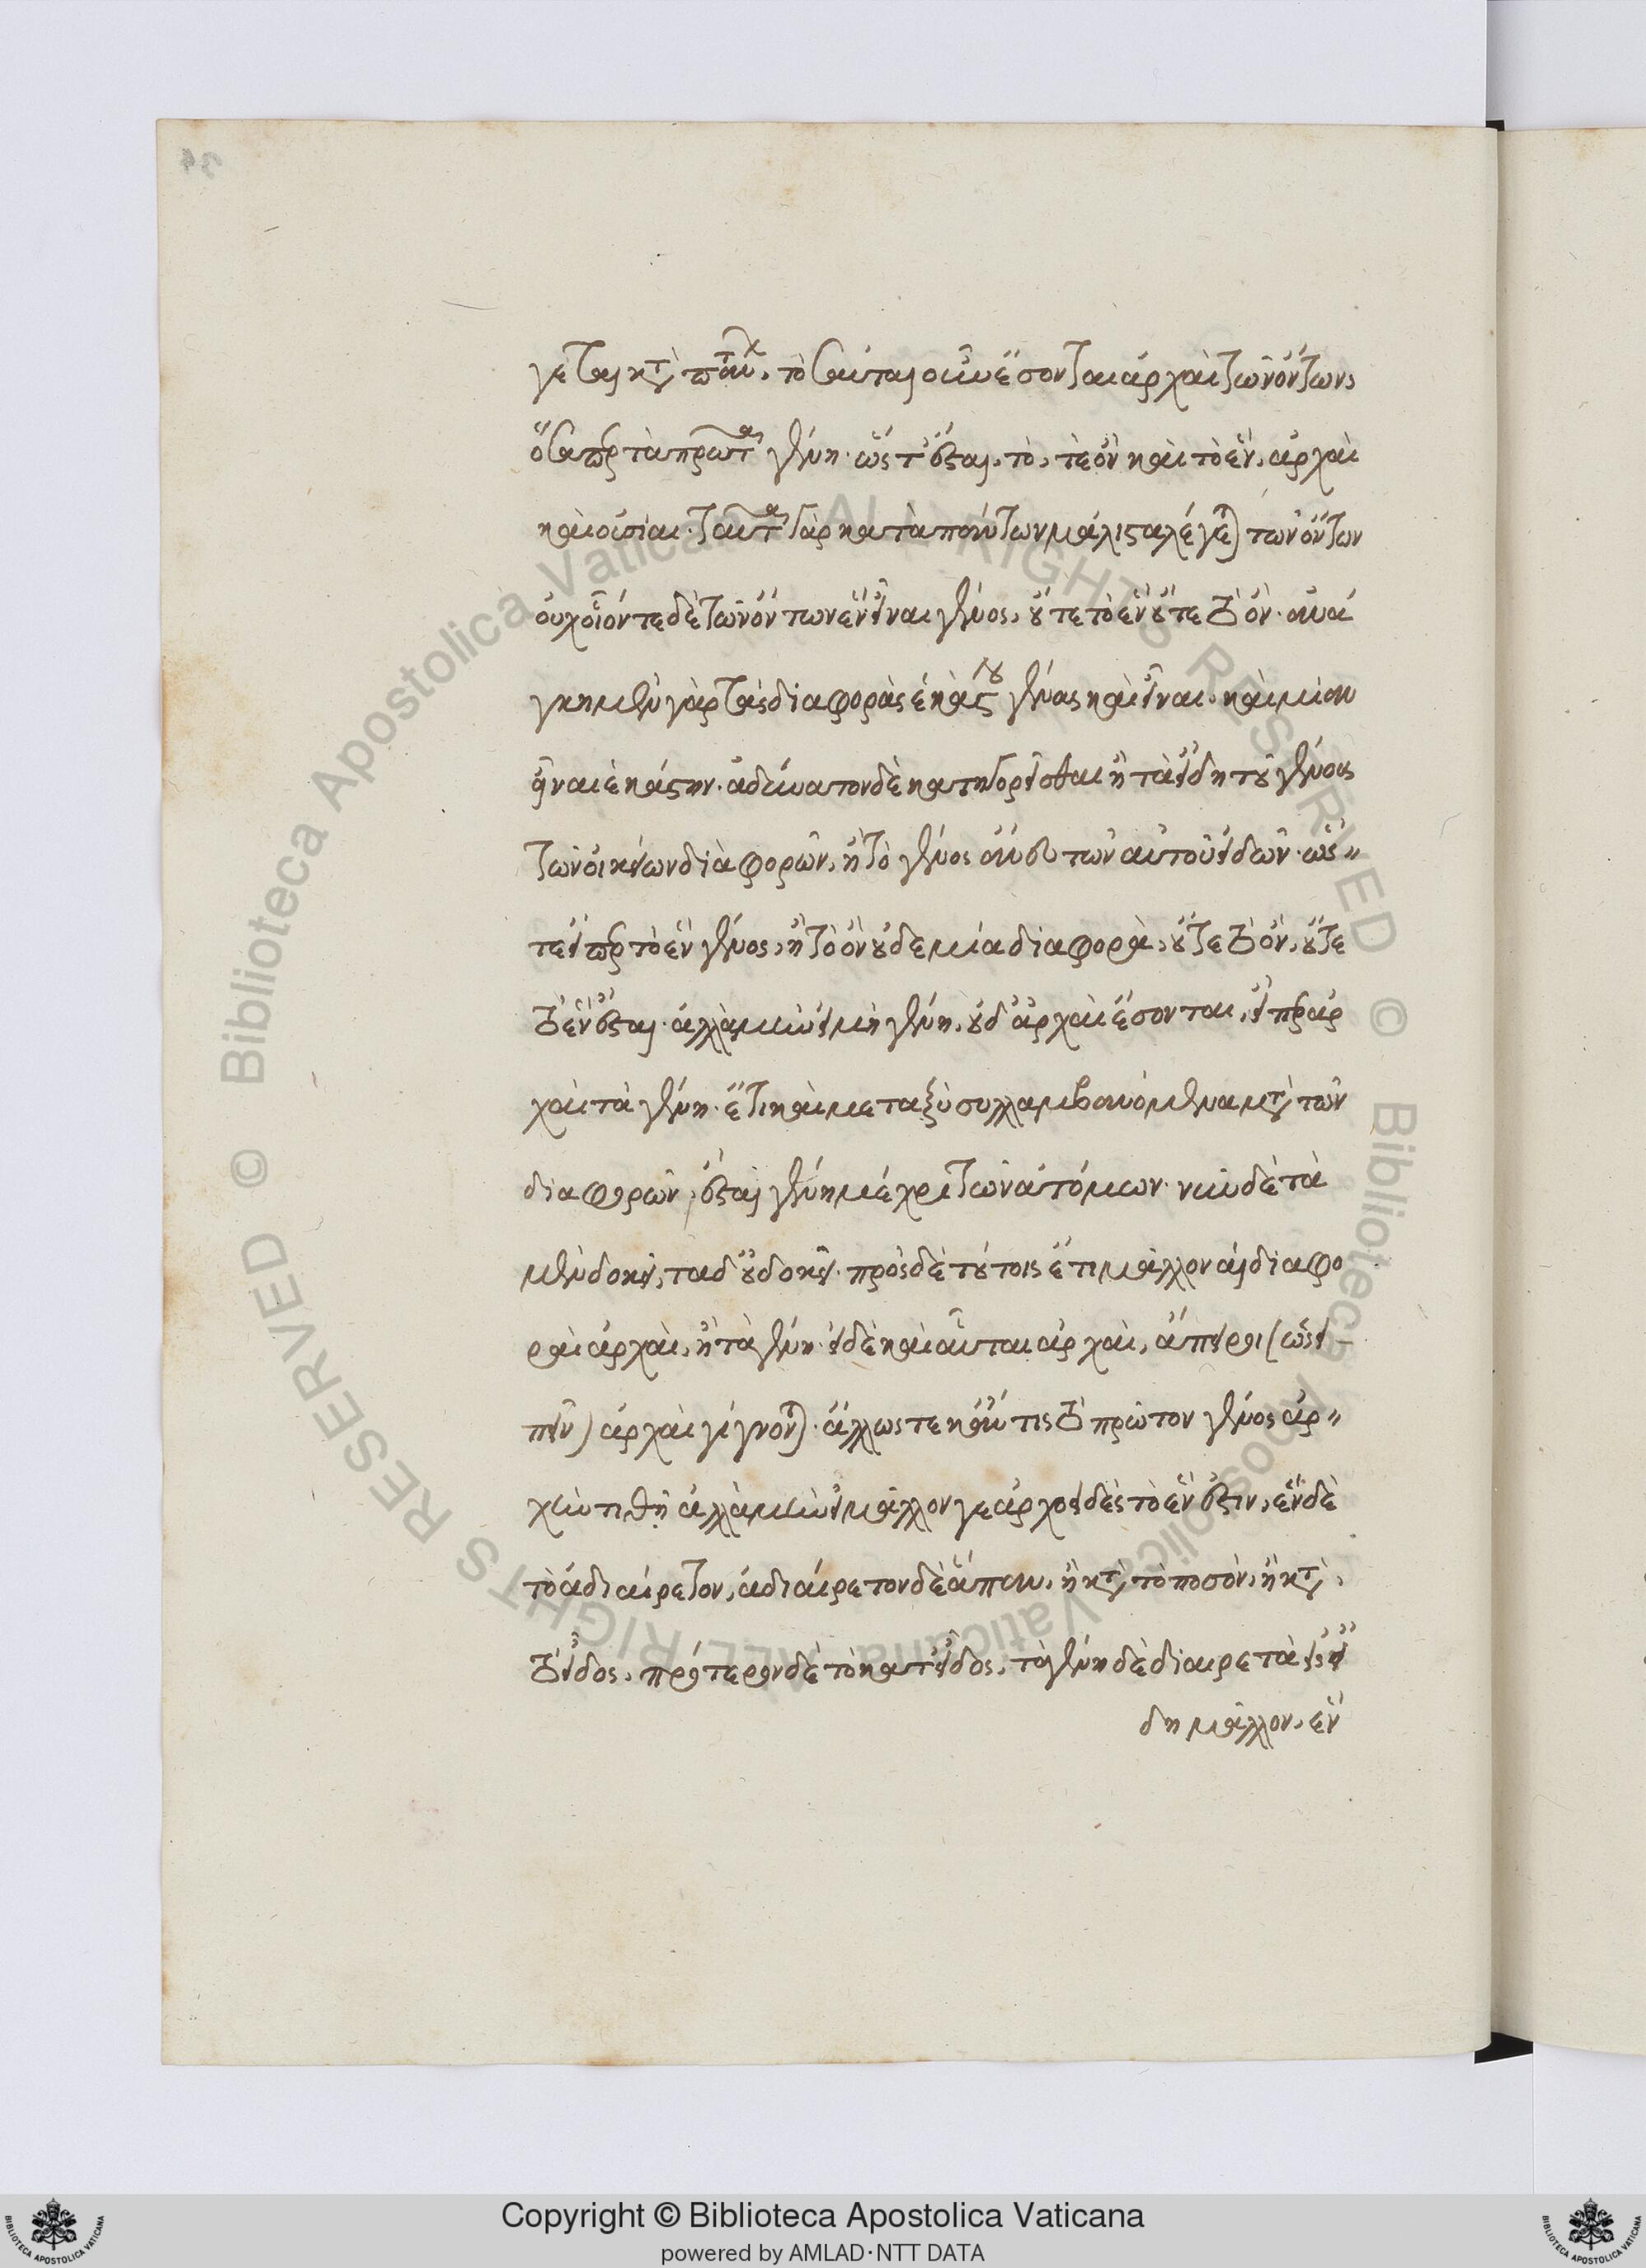 γεται κατὰ πάντων, τοσαῦται οὖν ἔσονται ἀρχαὶ τῶν ὄντων,
ὅσαπερ τὰ πρῶτα γένη· ὥστ' ἔσται, τό, τε ὂν καὶ τὸ ἓν, ἀρχαὶ
καὶ οὐσίαι· ταῦτα γὰρ κατὰ πάντων μάλιστα λέγεται τῶν ὄντων
οὐχ οἷόν τε δὲ τῶν ὄντων ἓν εἶναι γένος, οὔτε τὸ ἓν οὔτε τὸ ὄν· ἀνά
γκη μὲν γὰρ τὰς διαφορὰς ἑκάστου γένους καὶ εἶναι, καὶ μίαν
εἶναι ἑκάστην· ἀδύνατον δὲ κατηγορεῖσθαι ἢ τὰ εἴδη τοῦ γένους
τῶν οἰκείων διαφορῶν, ἢ τὸ γένος ἄνευ τῶν αὐτοῦ εἰδῶν· ὥσ〃
τε εἴπερ τὸ ἓν γένος, ἢ τὸ ὂν οὐδεμία διαφορὰ, οὔτε τὸ ὄν, οὔτε
τὸ ἓν ἔσται· ἀλλὰ μὴν εἰ μὴ γένη, οὐδ' ἀρχαὶ ἔσονται, εἴπερ ἀρ
χαὶ τὰ γένη· ἔτι καὶ μεταξὺ συλλαμβανόμενα μετὰ τῶν
διαφορῶν, ἔσται γένη μέχρι τῶν ἀτόμων· νῦν δὲ τὰ
μὲν δοκεῖ, τὰ δ' οὐ δοκεῖ· πρὸς δὲ τούτοις ἔτι μᾶλλον αἱ διαφο
ραὶ ἀρχαὶ, ἢ τὰ γένη· εἰ δὲ καὶ αὗται ἀρχαὶ, ἄπειροι (ὡς εἰ-
πεῖν) ἀρχαὶ γίγνονται· ἄλλως τε κἄν τις τὸ πρῶτον γένος ἀρ〃
χὴν τιθῇ ἀλλὰ μὴν εἰ μᾶλλόν γε ἀρχοειδὲς τὸ ἕν ἐστιν, ἓν δὲ
τὸ ἀδιαίρετον, ἀδιαίρετον δὲ ἅπαν, ἢ κατὰ τὸ ποσὸν, ἢ κατὰ
τὸ εἶδος, πρότερον δὲ τὸ κατ' εἶδος, τὰ γένη δὲ διαιρετὰ εἰς εἴ
δη μᾶλλον, ἓν
© Biblioteca Apostolica Vaticana ALL RIGHTS RESERVED © Biblioteca Apostolica Vaticana ALL RIGHTS RESERVED
Copyright © Biblioteca Apostolica Vaticana
powered by AMLAD·NTT DATA